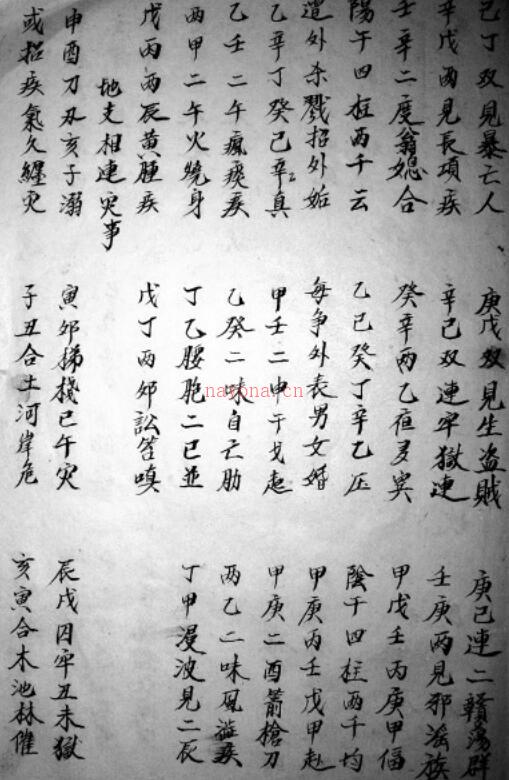 己丁双見暴亡人 庚戊双見生盗賊 庚己連二蕩群
辛戊两見長項疾 辛己双連牢獄連 壬庚两見邪滛族
壬辛二度翁媳合 癸辛两乙 甲戊壬丙庚甲偪
陽午四柱两千云 乙己癸丁辛乙压 陰干四柱两千均
遣外杀戮招外姤 每争外表男女婚 甲庚丙壬戊甲赴
乙辛丁癸己辛真 甲壬二申干戈起 甲庚二酉箭槍刀
乙壬二午瘋痰疾 乙癸二味自亡肋 两乙二味風疾
两甲二午火燒身 丁乙腰胞二巳並 丁甲漫波見二辰
戊丙两辰黄腫疾 戊丁两卯訟笞嗔
地支相連灾事
申酉刀刃亥子溺 寅卯梯棧巳午灾 辰戌囚牢丑未獄
或招疾氣久纏灾 子丑合土河岸危 亥寅合木池林催
nayona.cn